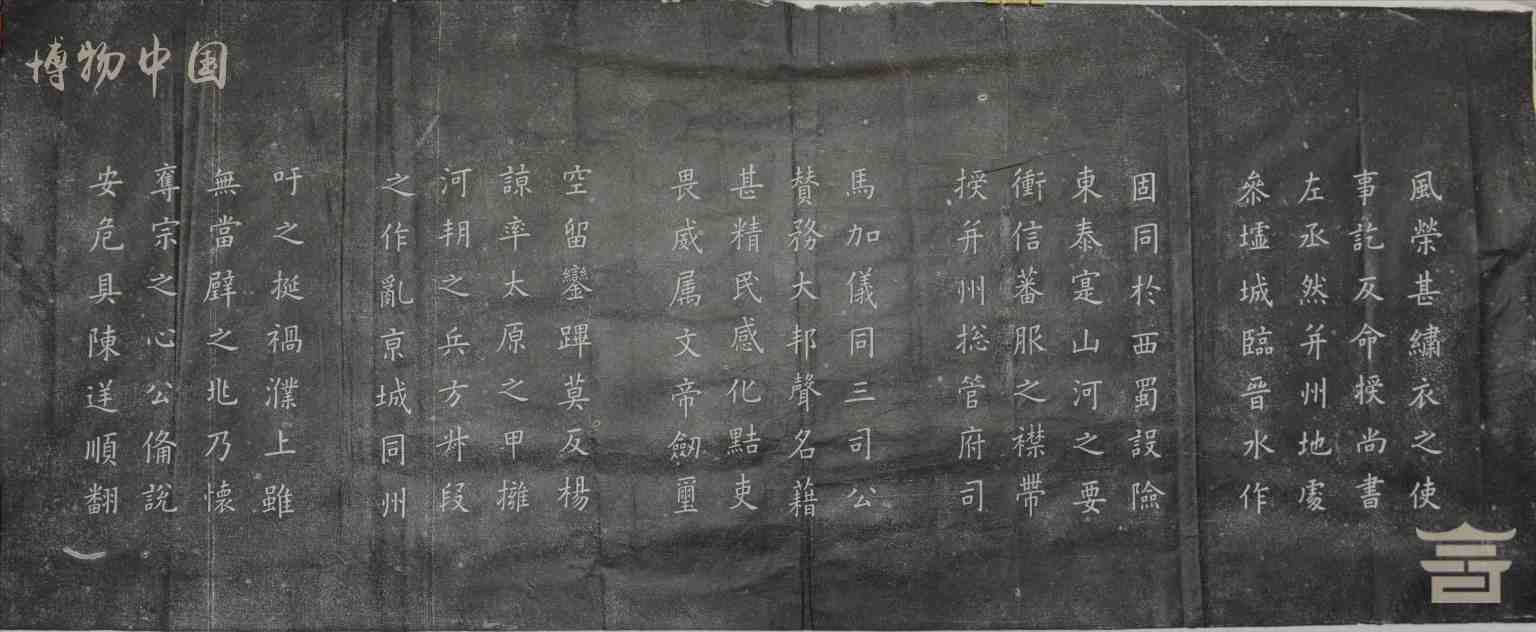 博物中国
風榮甚繡衣之使
事訖反命授尚書
左丞然并州地處
參墟城臨晉水作
固同於西蜀設險
東泰寔山河之要
衝信蕃服之襟帶
授并州揔管府司
馬加儀同三司公
贊務大邦聲名藉
甚精民感化黠吏
畏威属文帝劒璽
空留鑾蹕莫反楊
諒率太原之甲擁
河朔之兵方叶段
之作亂京城同州
吁之挺禍濮上雖
無當璧之兆乃懷
奪宗之心公俻說
安危具陳逆順翻